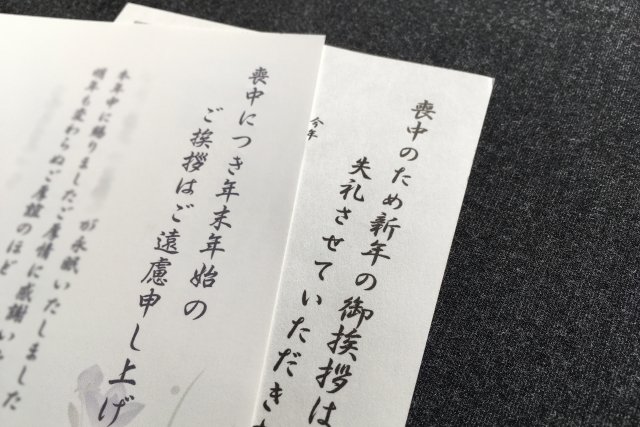 喪中につき年末年始の
ご挨拶はご遠慮申し上げ
が永眠いたしました
本年中に賜りましたご厚情に感謝いた
明年も変わらぬご厚誼のほど
喪中のため新年の御挨拶は
失礼させていただきま
今年